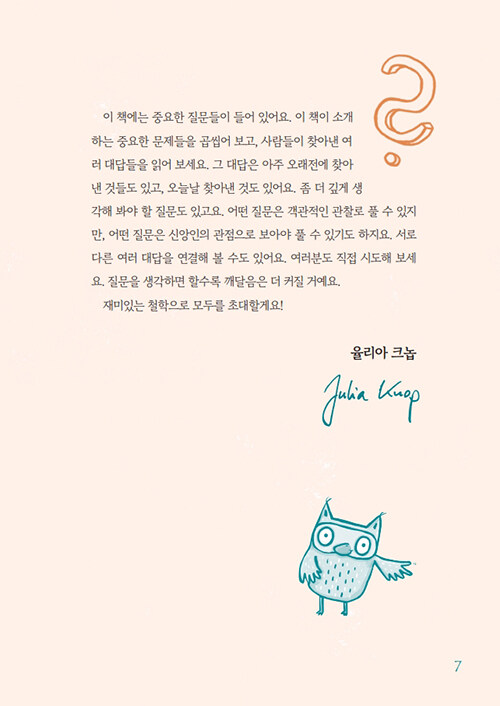 이 책에는 중요한 질문들이 들어 있어요. 이 책이 소개
하는 중요한 문제들을 곱씹어 보고, 사람들이 찾아낸 여
러 대답들을 읽어 보세요. 그 대답은 아주 오래전에 찾아
낸 것들도 있고, 오늘날 찾아낸 것도 있어요. 좀 더 깊게 생
각해 봐야 할 질문도 있고요. 어떤 질문은 객관적인 관찰로 풀 수 있지
만, 어떤 질문은 신앙인의 관점으로 보아야 풀 수 있기도 하지요. 서로
다른 여러 대답을 연결해 볼 수도 있어요. 여러분도 직접 시도해 보세
요. 질문을 생각하면 할수록 깨달음은 더 커질 거예요.
재미있는 철학으로 모두를 초대할게요!
율리아 크놉
Julia Knop
7